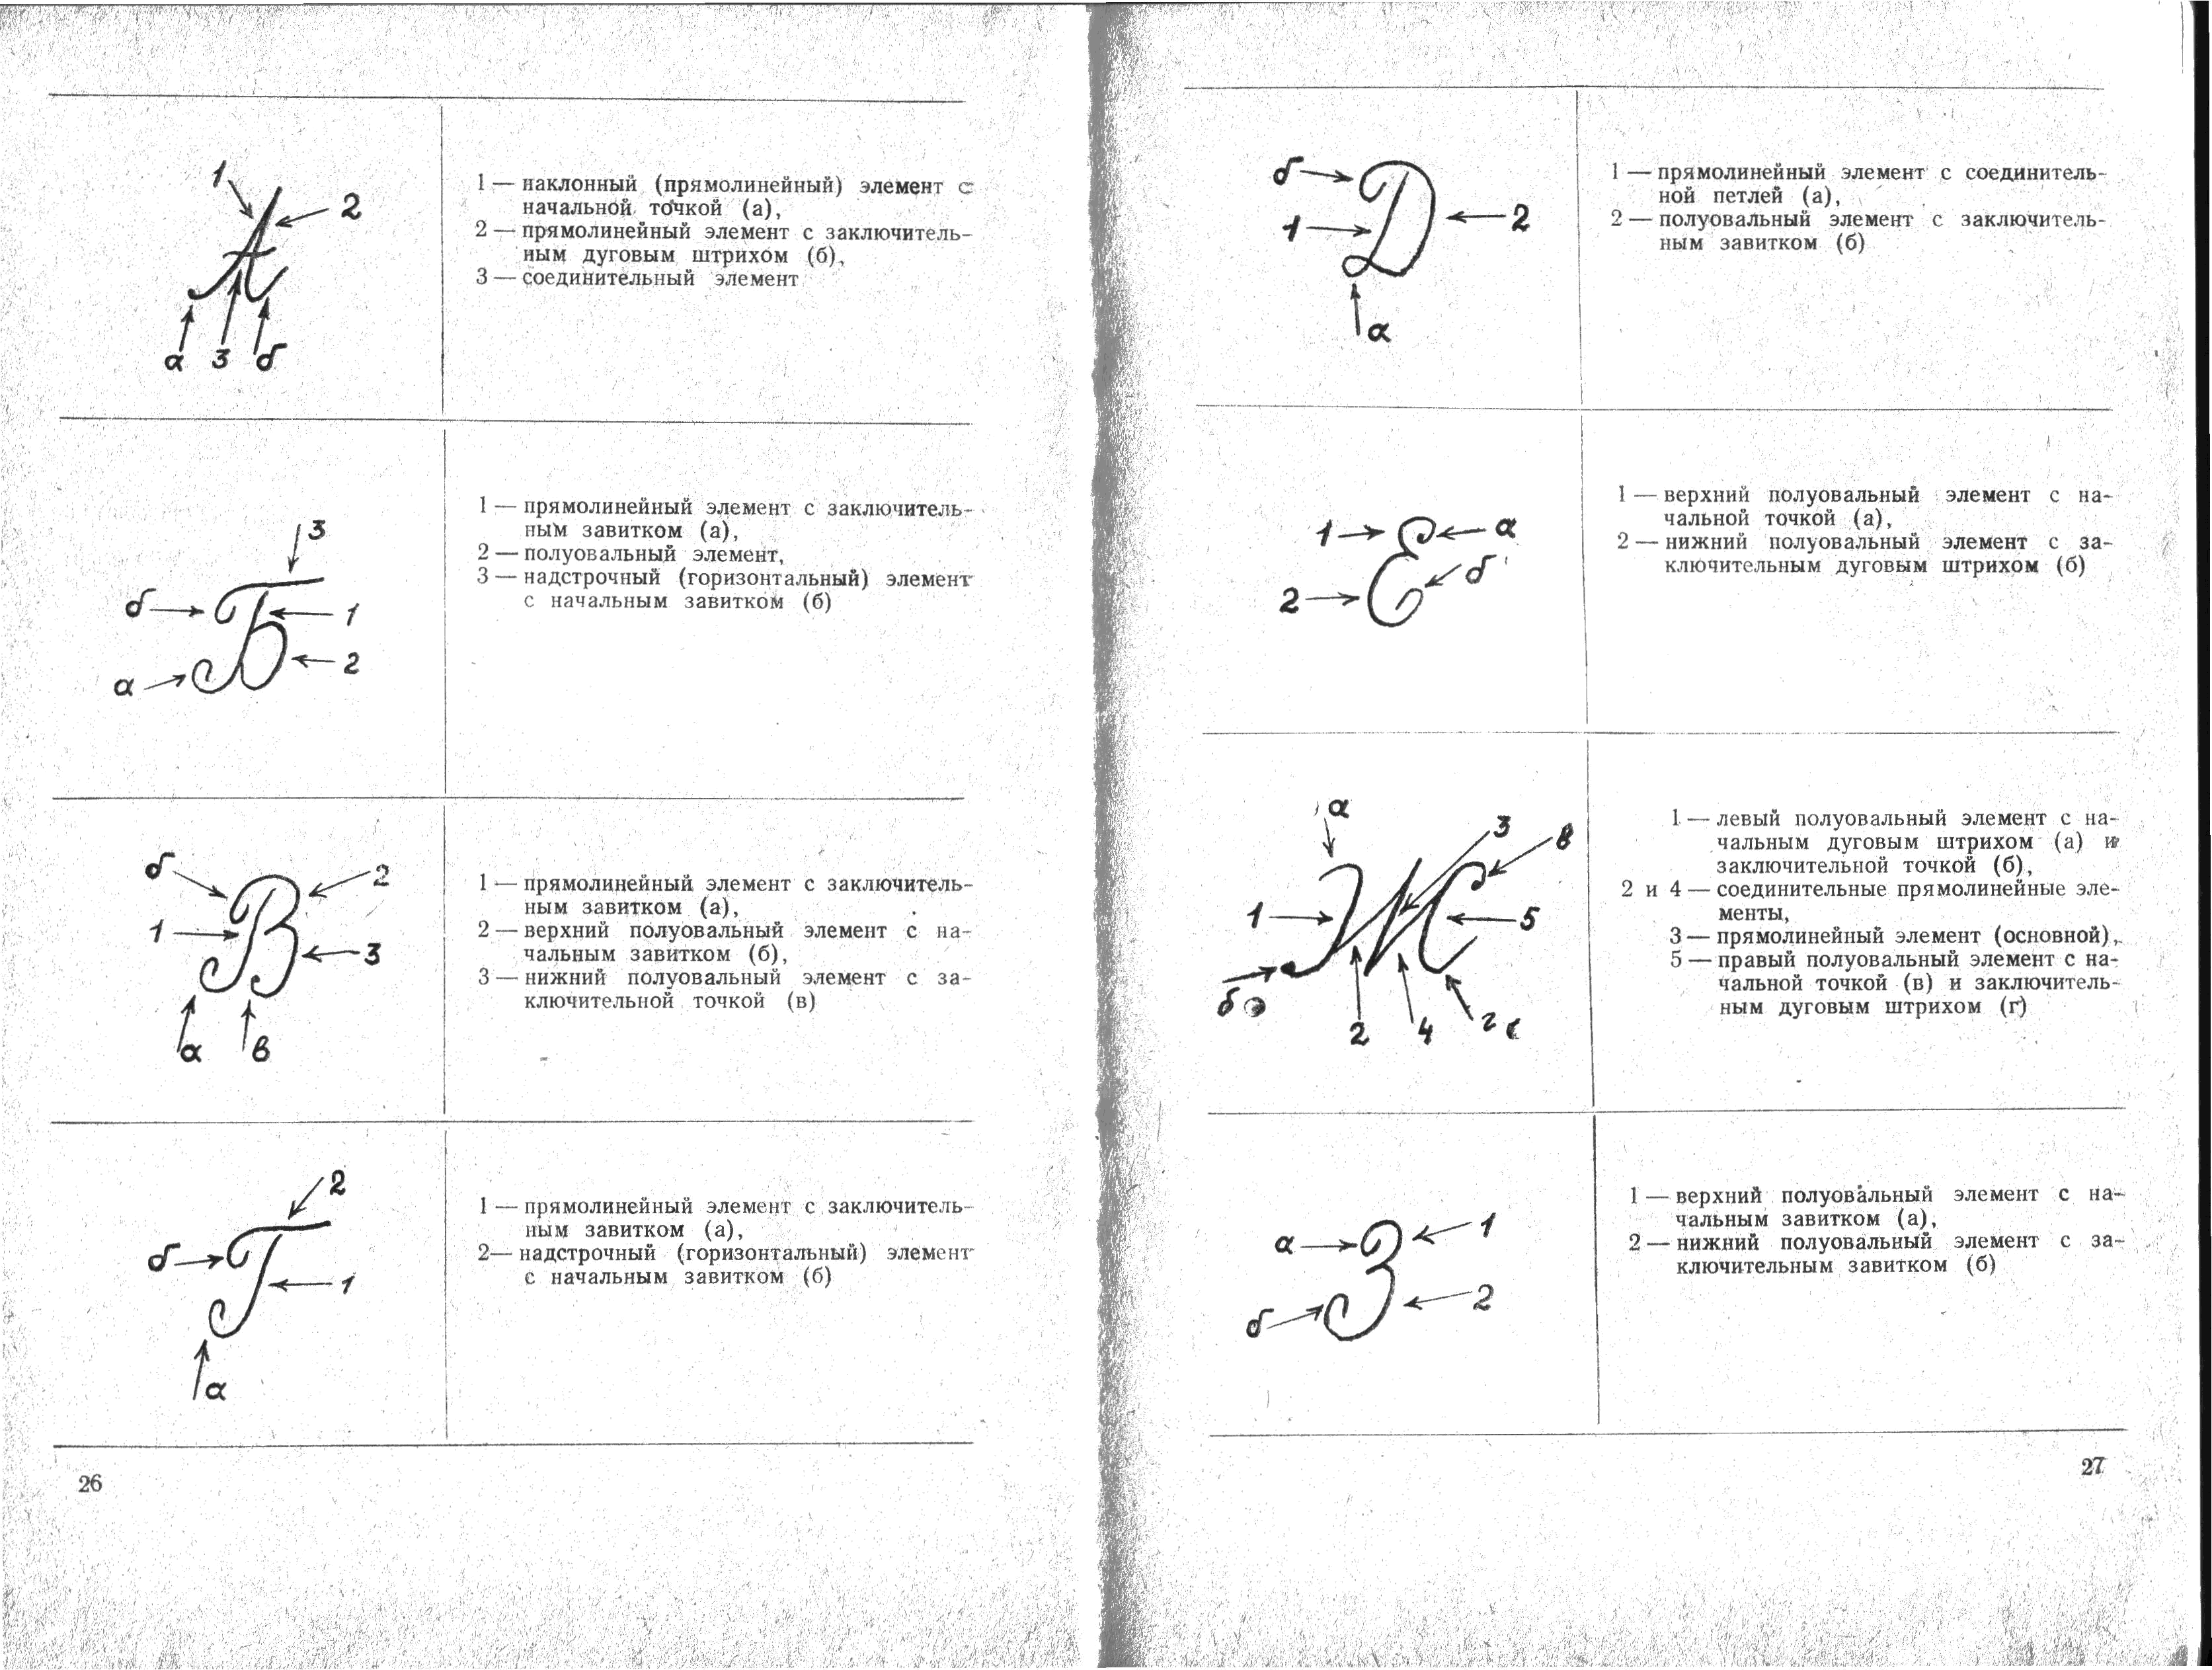 1
2
а 3 б
1 — наклонный (прямолинейный) элемент с
начальной точкой (а),
2 — прямолинейный элемент с заключитель-
ным дуговым штрихом (б),
3 — соединительный элемент
3
б
1
2
а
1 — прямолинейный элемент с заключитель-
ным завитком (а),
2 — полуовальный элемент,
3 — надстрочный (горизонтальный) элемент
с начальным завитком (б)
б
2
1
3
а в
1 — прямолинейный элемент с заключитель-
ным завитком (а),
2 — верхний полуовальный элемент с на-
чальным завитком (б),
3 — нижний полуовальный элемент с за-
ключительной точкой (в)
2
б
1
а
1 — прямолинейный элемент с заключитель-
ным завитком (а),
2— надстрочный (горизонтальный) элемент
с начальным завитком (б)
26
б
1
2
а
1 — прямолинейный элемент с соединитель-
ной петлей (а),
2 — полуовальный элемент с заключитель-
ным завитком (б)
1 а
б
2
1 — верхний полуовальный элемент с на-
чальной точкой (а),
2 — нижний полуовальный элемент с за-
ключительным дуговым штрихом (б)
а
3
в
1
5
б
2 4 г
1 — левый полуовальный элемент с на-
чальным дуговым штрихом (а) и
заключительной точкой (б),
2 и 4 — соединительные прямолинейные эле-
менты,
3 — прямолинейный элемент (основной),
5 — правый полуовальный элемент с на-
чальной точкой (в) и заключитель-
ным дуговым штрихом (г)
а
1
2
б
1 — верхний полуовальный элемент с на-
чальным завитком (а),
2 — нижний полуовальный элемент с за-
ключительным завитком (б)
27